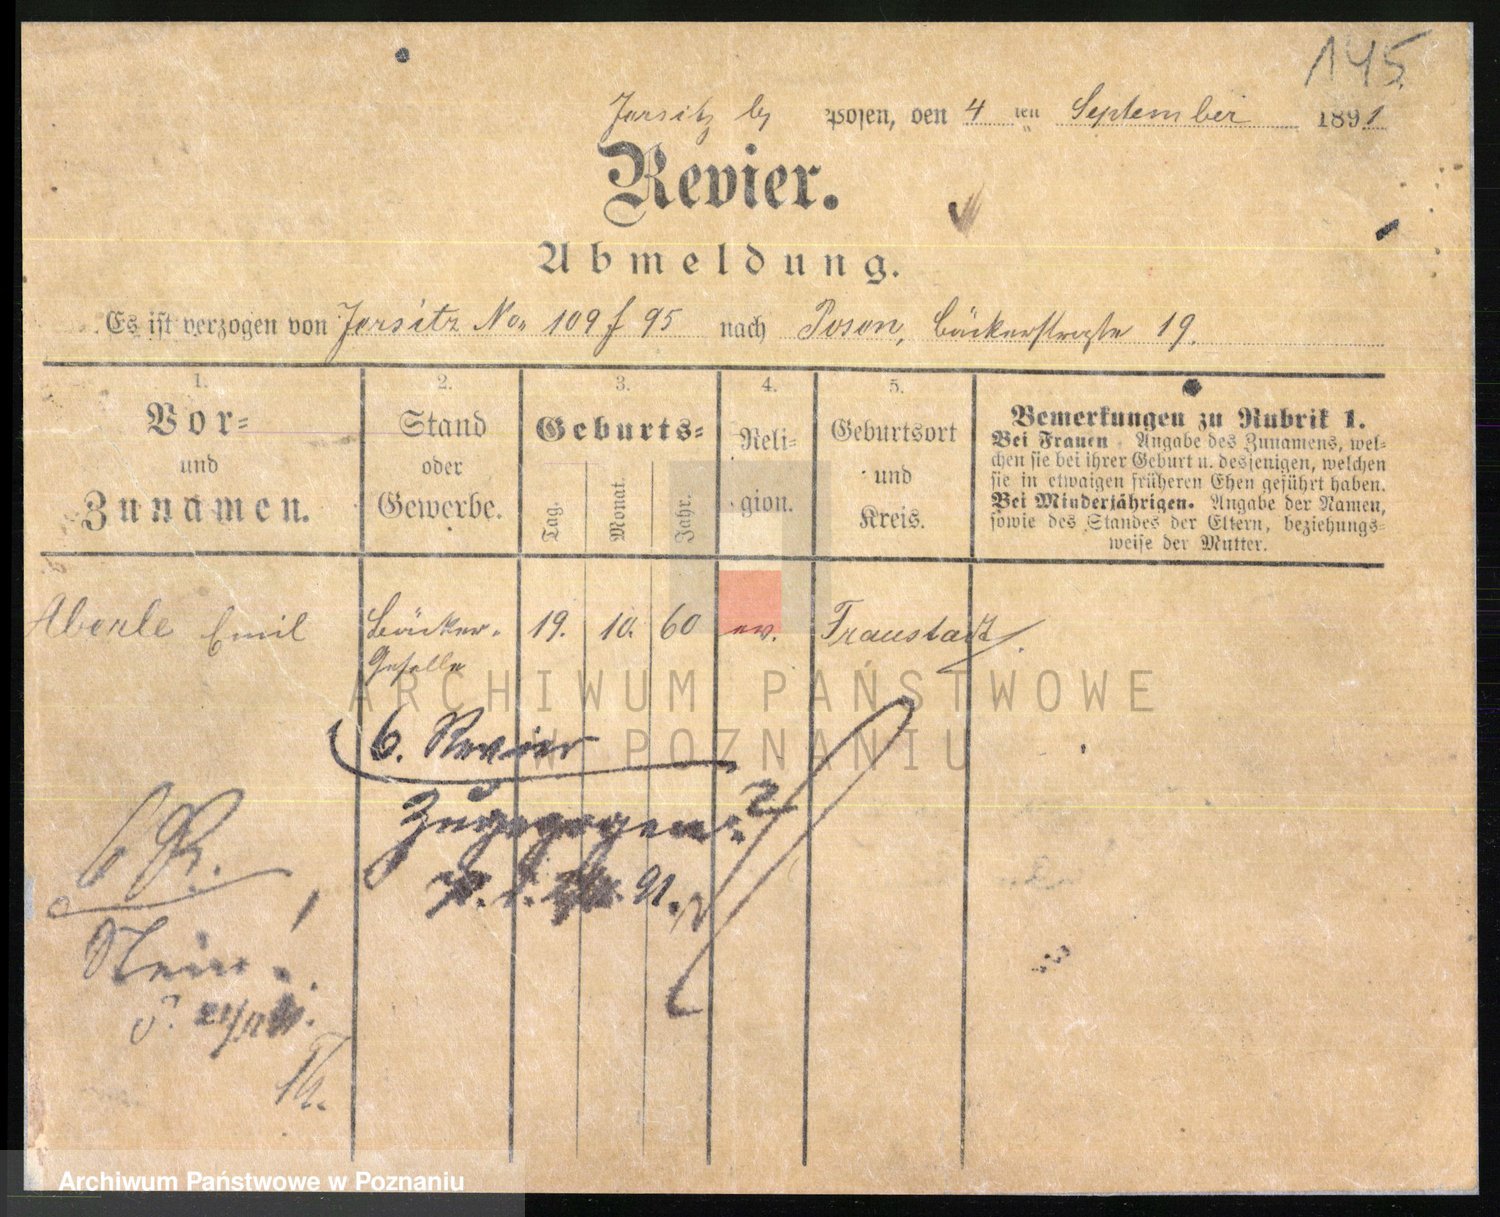 145.
Jersitz by Posen, den 4 ten September 1891
Revier.
Abmeldung.
Es ist verzogen von Jersitz No. 109 f 95 nach Posen, Bäckerstraße 19.
1.
Vor-
und
Zunamen.
2.
Stand
oder
Gewerbe.
3.
Geburts-
Tag.
Monat.
Jahr.
4.
Reli-
gion.
5.
Geburtsort
und
Kreis.
Bemerkungen zu Rubrik 1.
Bei Frauen Angabe des Zunamens, wel-
chen sie bei ihrer Geburt u. desjenigen, welchen
sie in etwaigen früheren Ehen geführt haben.
Bei Minderjährigen. Angabe der Namen,
sowie des Standes der Eltern, beziehungs-
weise der Mutter.
Aberle Emil Bäcker- 19. 10. 60 ev. Fraustadt
Geselle
ARCHIWUM PAŃSTWOWE
W POZNANIU
6. Revier
Zugezogen?
91.
6 R.
Nein.
Archiwum Państwowe w Poznaniu